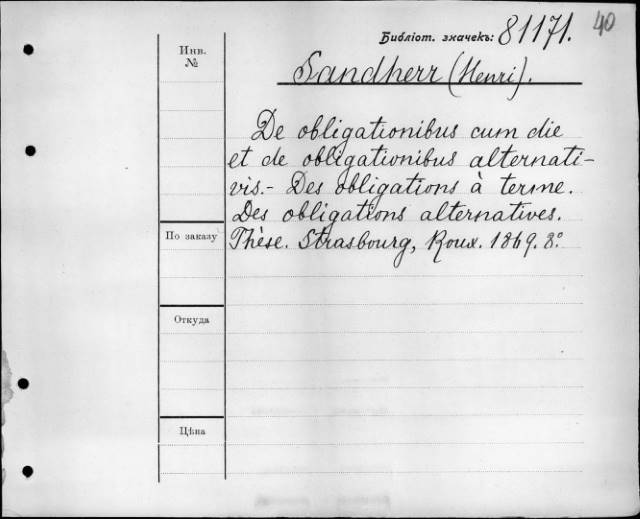 40
Библіот. значекъ: 81171.
Инв.
№
Sandherr (Henri).
De obligationibus cum die
et de obligationibus alternati-
vis.- Des obligations à terme.
Des obligations alternatives.
По заказу
Thèse. Strasbourg, Roux. 1869. 8.º
Откуда
Цѣна